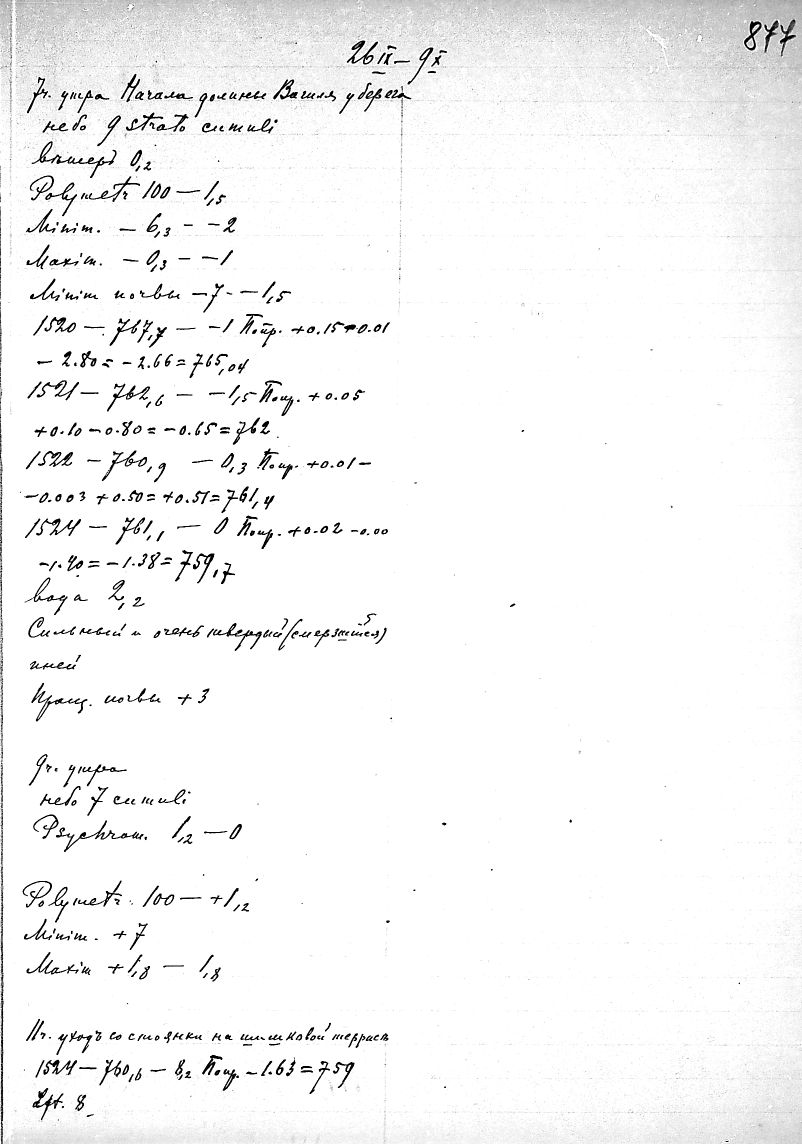 877
26 IX – 9 X
7ч. утра Начала долины Вагиля у берега
небо 9 strato cumuli
вѣтеръ 0,2
Polymetr 100 — 1,5
Minim. — 6,3 - -2
Maxim. — 0,3 - -1
Minim почвы —7 - —1,5
1520 — 767,7 — -1 Попр. +0.15 +0.01
— 2.80 = -2.66 = 765,04
1521 — 762,6 — -1,5 Попр. +0.05
+0.10 -0.80 = -0.65 = 762
1522 — 760,9 — 0,3 Попр. +0.01 -
-0.003 +0.50 = +0.51 = 761,4
1524 — 761,1 — 0 Попр. +0.02 -0.00
-1.40 = -1.38 = 759,7
вода 2,2
Сильный и очень твердый (смерзшійся)
иней
Пращ. почвы +3
9ч. утра
небо 7 cumuli
Psychrom. 1,2 — 0
Polymetr. 100 — +1,2
Minim. +7
Maxim +1,8 — 1,8
11ч. уходъ со стоянки на террасѣ
1524 — 760,6 — 8,2 Попр. -1.63 = 759
Lft. 8